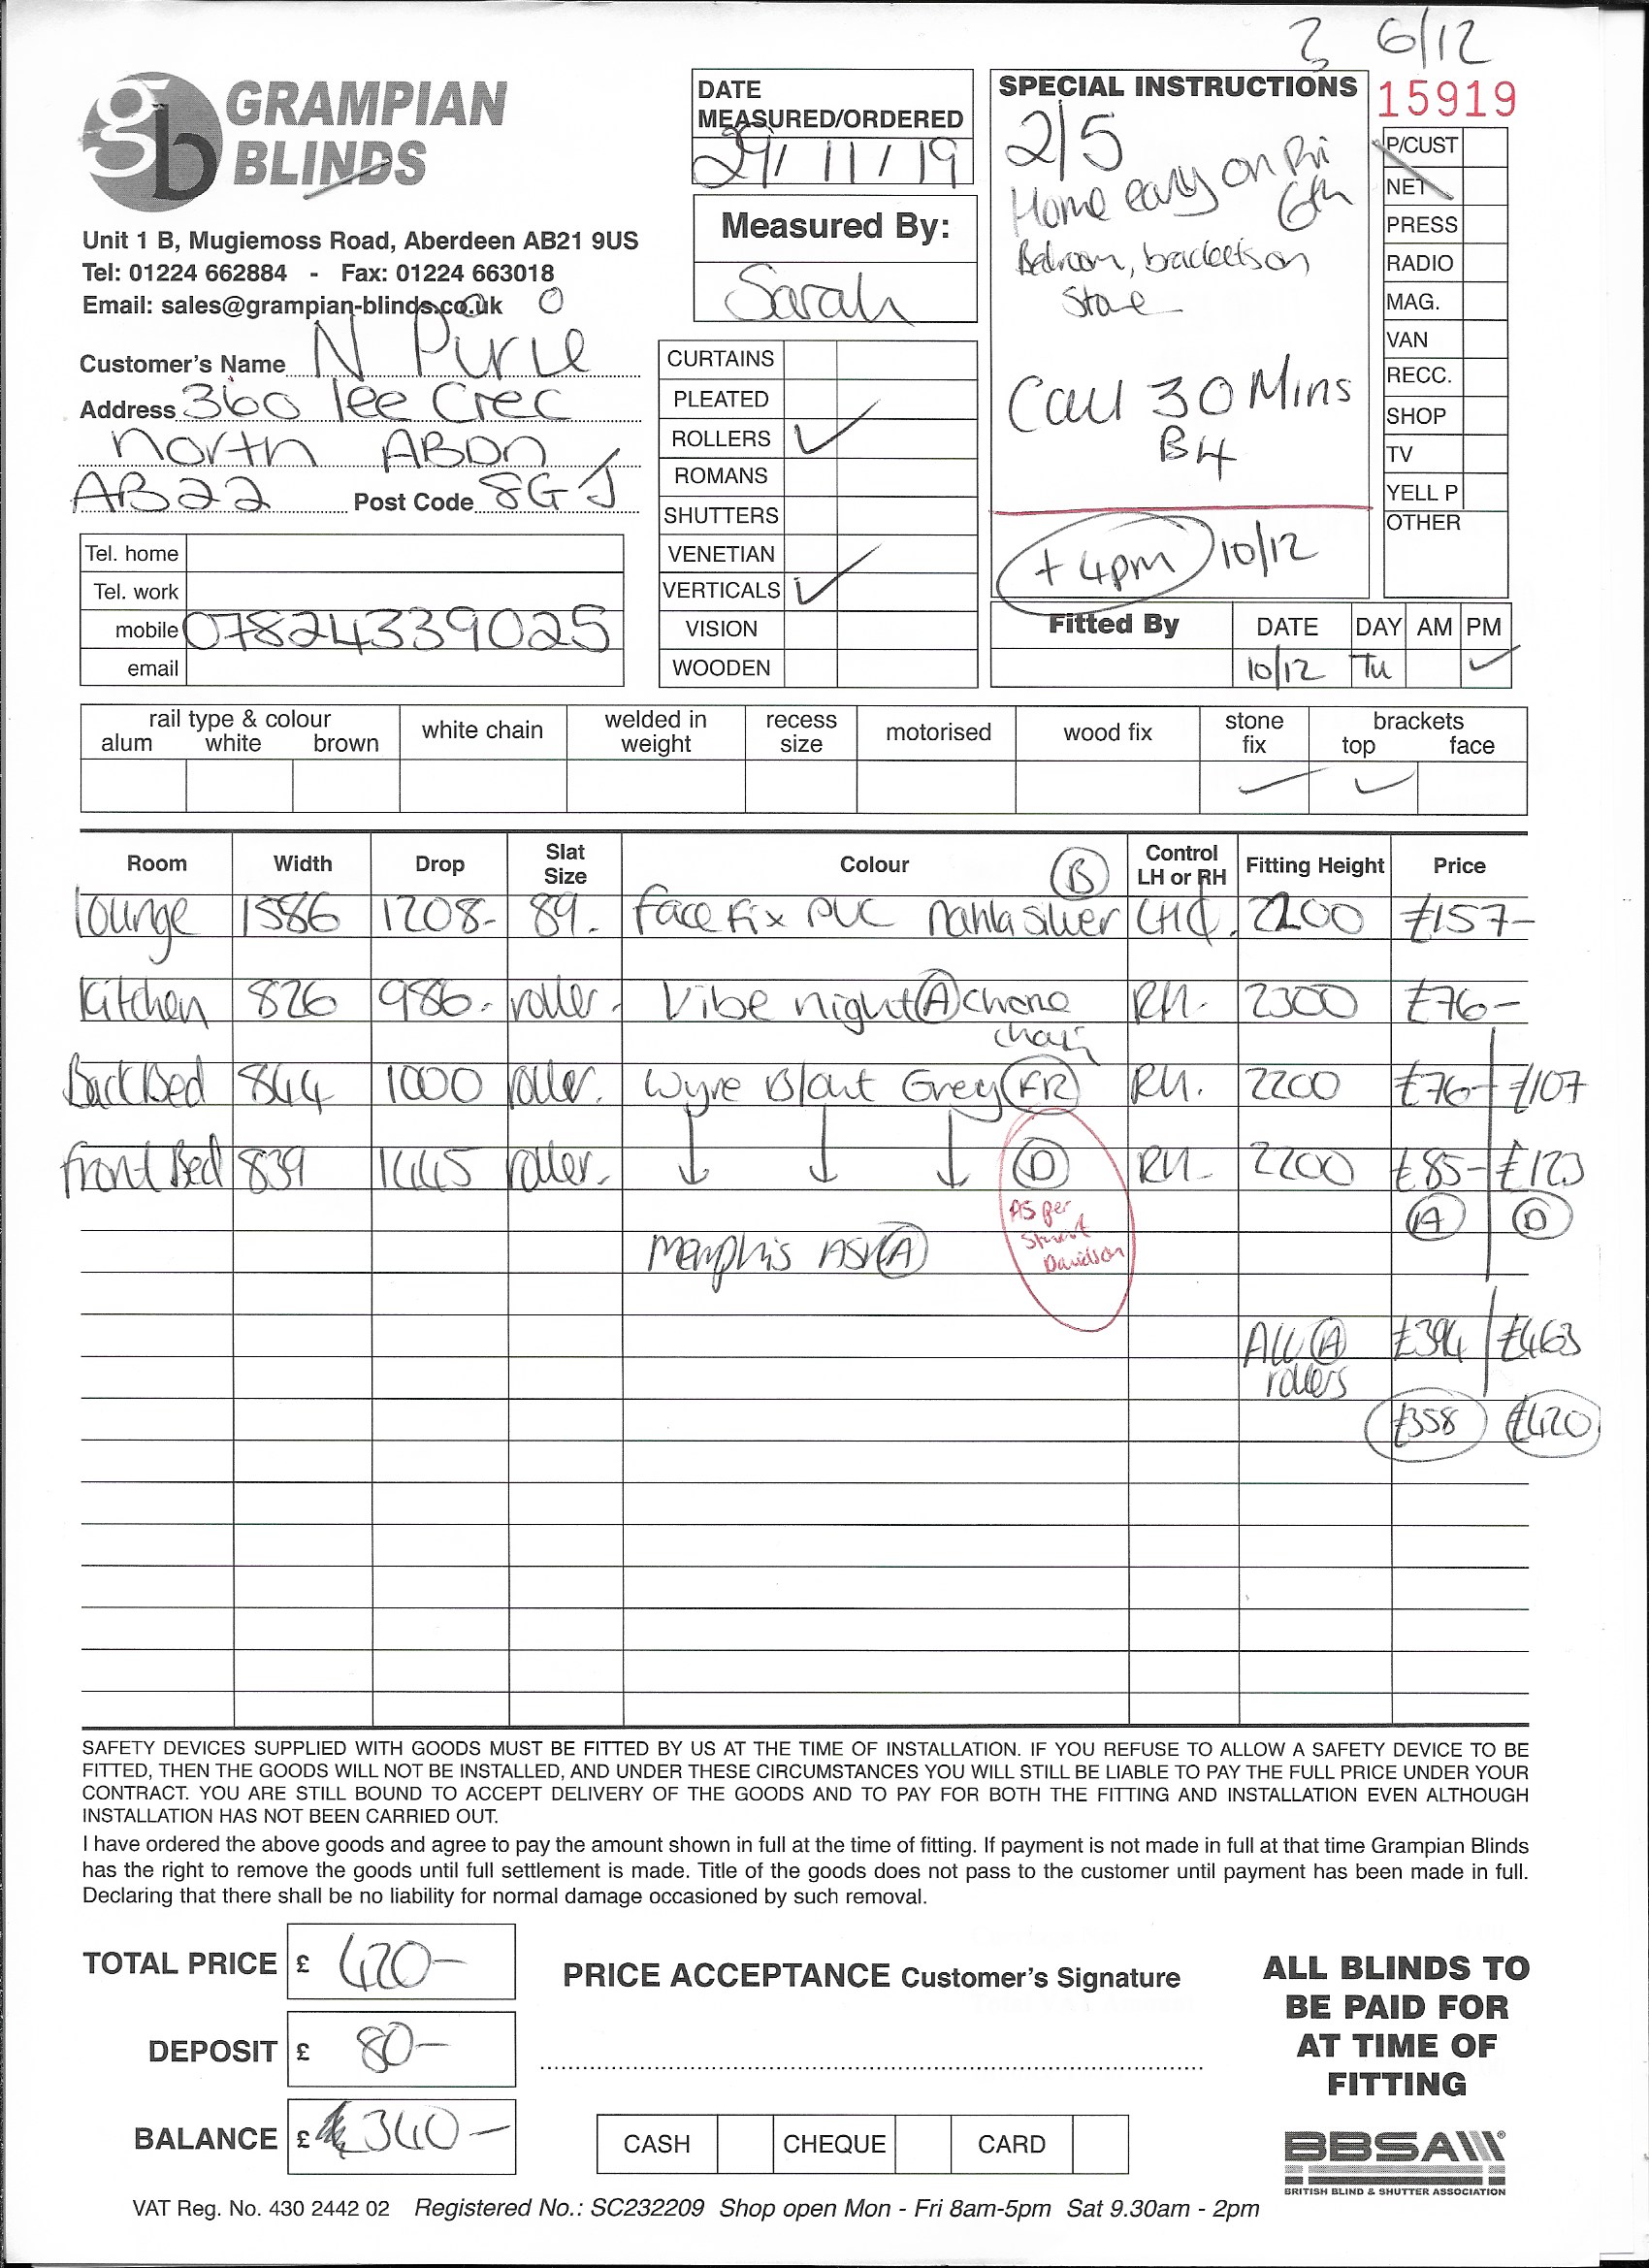 ? 6/12
GRAMPIAN
BLINDS
Unit 1 B, Mugiemoss Road, Aberdeen AB21 9US
Tel: 01224 662884 - Fax: 01224 663018
Email: sales@grampian-blinds.co.uk
Customer's Name N Pirie
Address 360 Lee Cres
North ABDN
AB22 Post Code 8GJ
Tel. home
Tel. work
mobile 07824339025
email
DATE
MEASURED/ORDERED
29/11/19
Measured By:
Sarah
CURTAINS
PLEATED
ROLLERS ✓
ROMANS
SHUTTERS
VENETIAN
VERTICALS ✓
VISION
WOODEN
SPECIAL INSTRUCTIONS
2/5
Home early on Fri
6th
Bedroom, brackets on
stone
Call 30 Mins
B4
+ 4pm 10/12
15919
P/CUST
NET
PRESS
RADIO
MAG.
VAN
RECC.
SHOP
TV
YELL P
OTHER
Fitted By DATE DAY AM PM
10/12 Tu ✓
rail type & colour
alum white brown
white chain
welded in
weight
recess
size
motorised
wood fix
stone
fix
brackets
top face
✓ ✓
Room Width Drop Slat Size Colour B Control LH or RH Fitting Height Price
Lounge 1586 1208- 89. face fix PVC Nahla Silver LHC. 2200 £157-
Kitchen 826 986- roller. Vibe night A chrome RH. 2300 £76-
chain
Back Bed 844 1000 roller. Wyre Blout Grey FR RH. 2200 £76- £107
front Bed 839 1445 roller. ↓ ↓ ↓ D RH- 2200 £85- £123
A D
As per
Stuart
Davidson
Memphis ASH A
ALL A £394 £463
rollers
£358 £420
SAFETY DEVICES SUPPLIED WITH GOODS MUST BE FITTED BY US AT THE TIME OF INSTALLATION. IF YOU REFUSE TO ALLOW A SAFETY DEVICE TO BE
FITTED, THEN THE GOODS WILL NOT BE INSTALLED, AND UNDER THESE CIRCUMSTANCES YOU WILL STILL BE LIABLE TO PAY THE FULL PRICE UNDER YOUR
CONTRACT. YOU ARE STILL BOUND TO ACCEPT DELIVERY OF THE GOODS AND TO PAY FOR BOTH THE FITTING AND INSTALLATION EVEN ALTHOUGH
INSTALLATION HAS NOT BEEN CARRIED OUT.
I have ordered the above goods and agree to pay the amount shown in full at the time of fitting. If payment is not made in full at that time Grampian Blinds
has the right to remove the goods until full settlement is made. Title of the goods does not pass to the customer until payment has been made in full.
Declaring that there shall be no liability for normal damage occasioned by such removal.
TOTAL PRICE £ 420-
DEPOSIT £ 80-
BALANCE £ 340-
PRICE ACCEPTANCE Customer's Signature
CASH CHEQUE CARD
ALL BLINDS TO
BE PAID FOR
AT TIME OF
FITTING
BBSA
BRITISH BLIND & SHUTTER ASSOCIATION
VAT Reg. No. 430 2442 02 Registered No.: SC232209 Shop open Mon - Fri 8am-5pm Sat 9.30am - 2pm